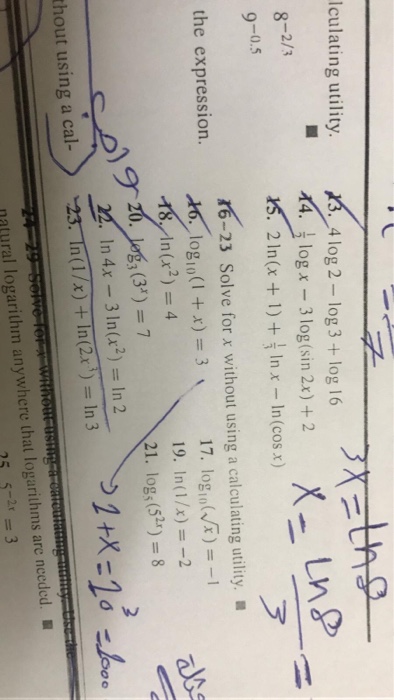 lculating utility.
8^{-2/3}
9^{-0.5}
the expression.
thout using a cal-
13. 4 log 2 − log 3 + log 16
14. ½ log x − 3 log(sin 2x) + 2
15. 2 ln(x + 1) + ⅓ ln x − ln(cos x)
16–23 Solve for x without using a calculating utility.
16. log₁₀(1 + x) = 3
17. log₁₀(√x) = −1
18. ln(x²) = 4
19. ln(1/x) = −2
20. log₃(3ˣ) = 7
21. log₅(5²ˣ) = 8
22. ln 4x − 3 ln(x²) = ln 2
23. ln(1/x) + ln(2x³) = ln 3
24–29 Solve for x without using a calculating utility. Use the
natural logarithm anywhere that logarithms are needed.
25. 5^{-2x} = 3
3x = ln8
x = ln8
3
=
1+x=10³=1000